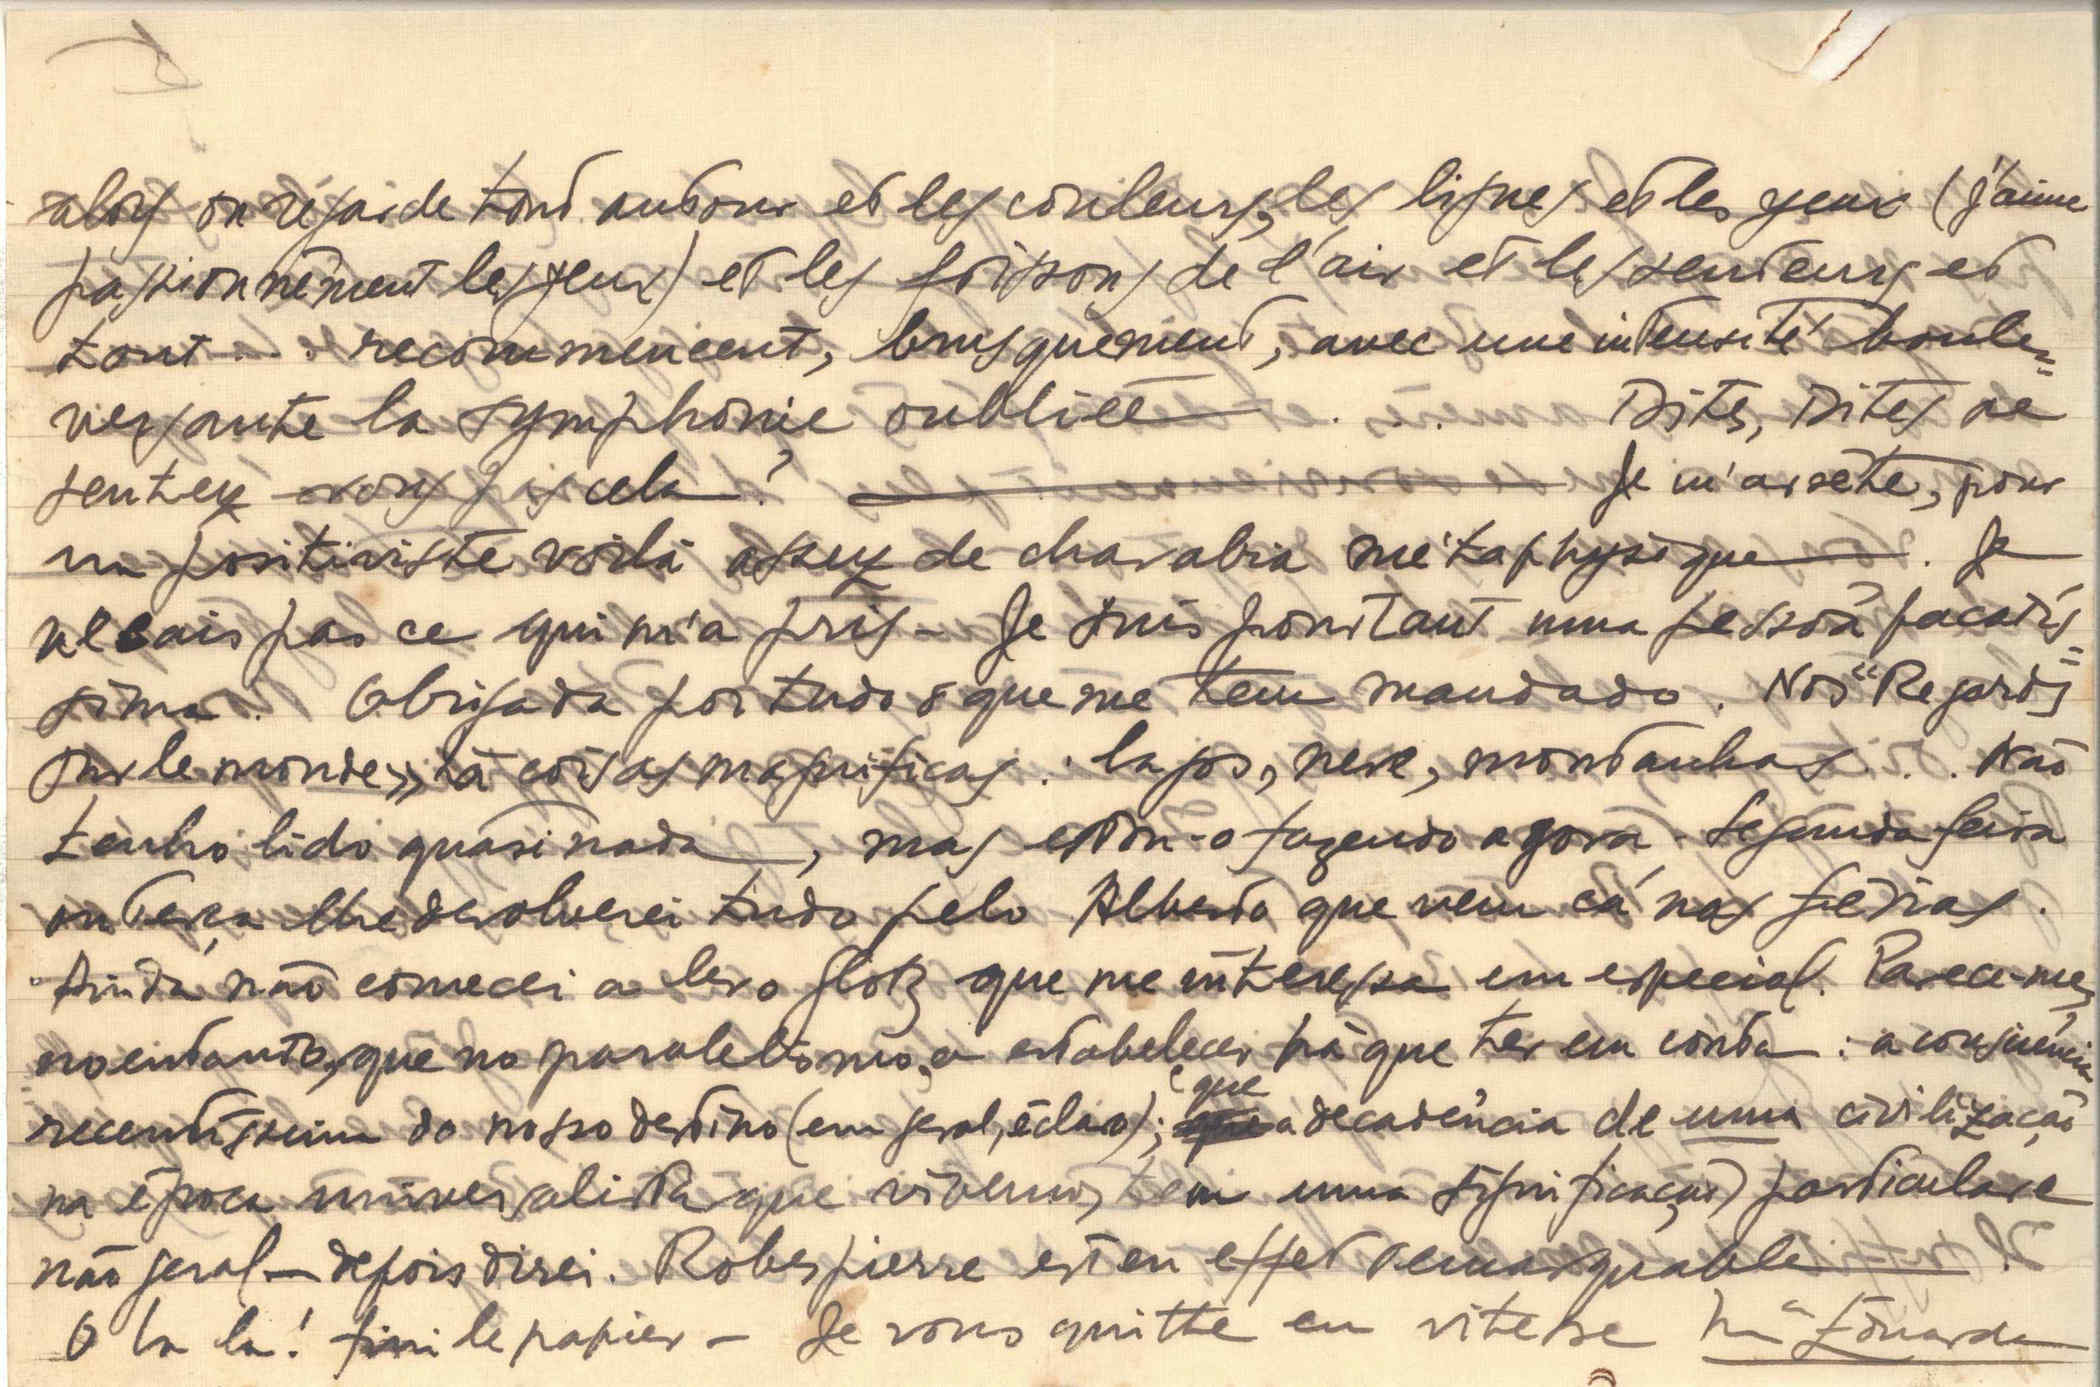 alors on régarde tout autour et les couleurs, les lignes et les yeux (j'aime
passionnément les yeux) et les frissons de l'air et les senteurs et
tout ... recommencent, brusquement, avec une intensité boule=
versante la symphonie oubliée ... Dites, Dites ne
sentez-vous pas cela? — Je m'arrête, pour
un positiviste voilà assez de charabia métaphysique. Je
ne sais pas ce qui m'a pris - Je suis pourtant uma pessoa pacatís=
sima. Obrigada por tudo o que me tem mandado. Nos "Regards
sur le monde" há coisas magníficas: lagos, neve, montanhas... Não
tenho lido quási nada, mas estou-o fazendo agora. Segunda feira
ou terça lhe devolverei tudo pelo Alberto que vem cá nas férias.
Ainda não comecei a ler o Glotz que me interessa em especial. Parece-me,
no entanto, que no paralelismo a estabelecer há que ter em conta: a consciência
recentíssima do nosso destino (em geral, é claro); que a decadência de uma civilização
na época universalista que vivemos, tem uma significação particular e
não geral — depois direi. Robespierre est en effet remarquable.
O la la! fini le papier - Je vous quitte en vitesse Mª Eduarda